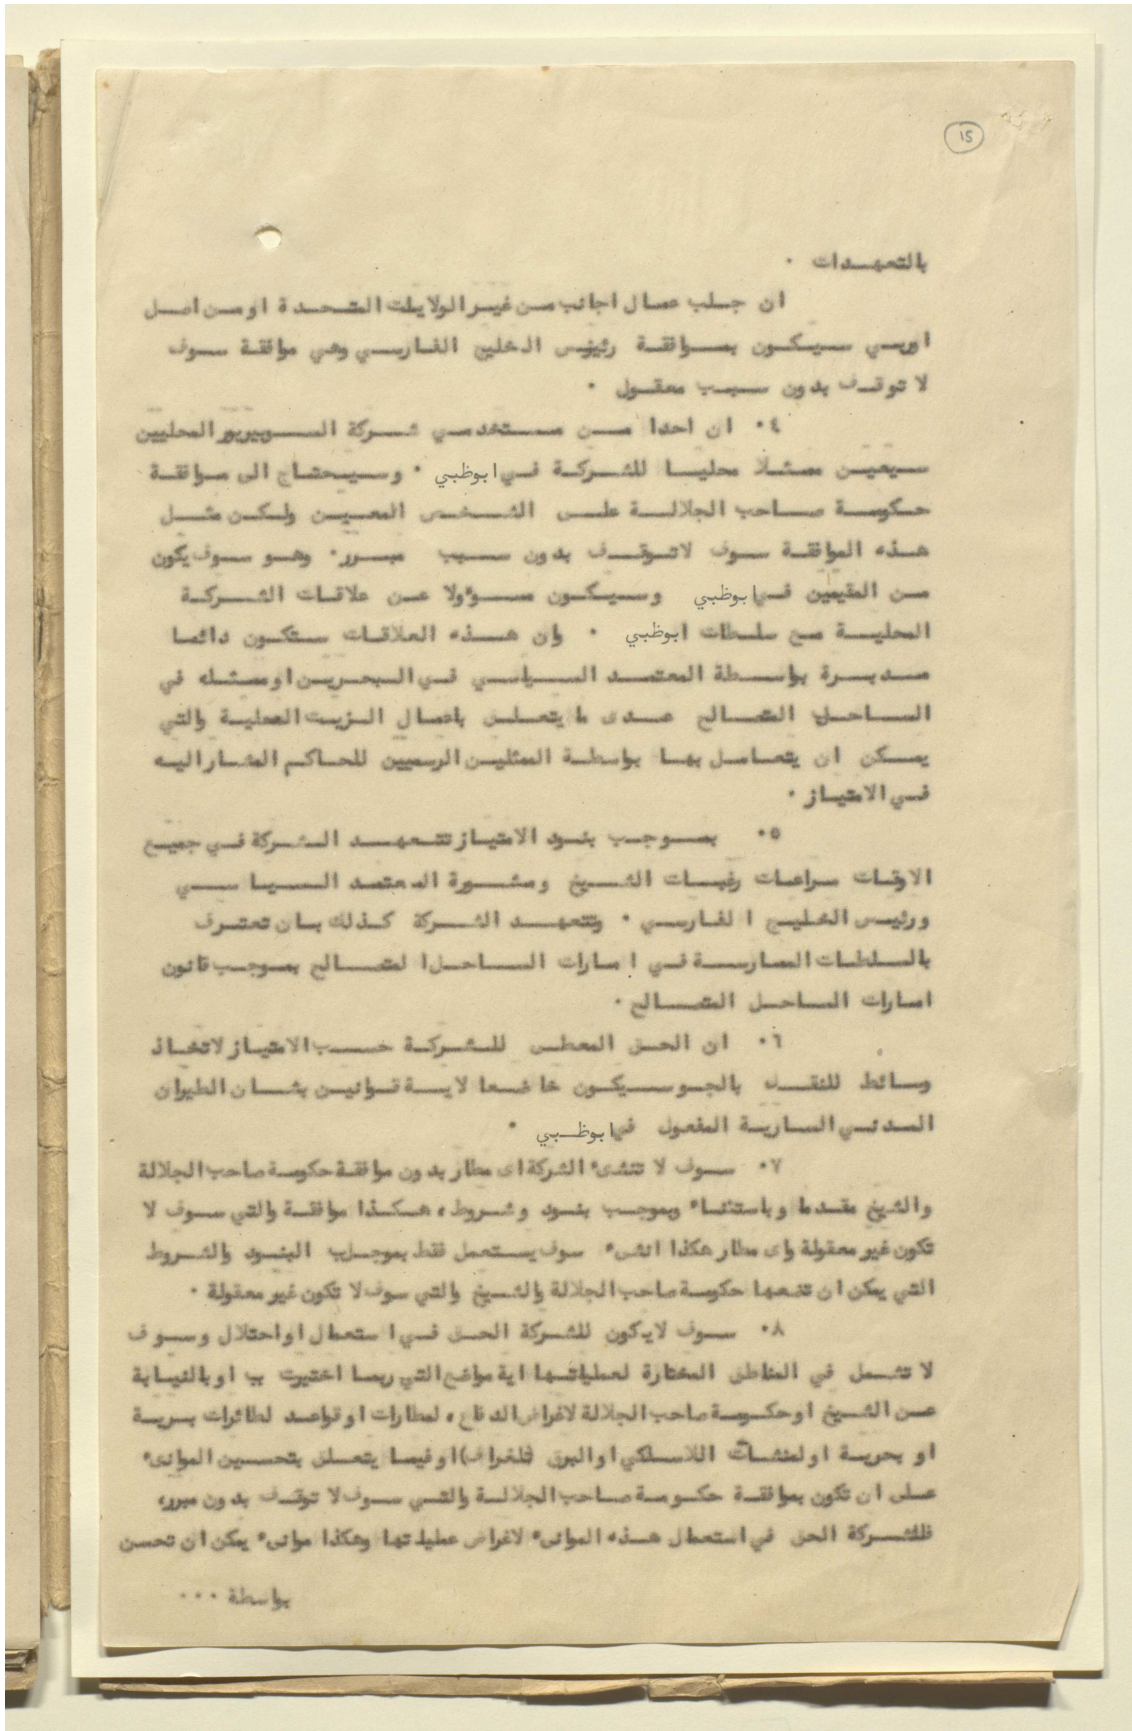 ١٥
بالتعهدات ٠
ان جلب عمال اجانب من غير الولايات المتحدة او من اصل
اوربي سيكون بموافقة رئيس الخليج الفارسي وهي موافقة سوف
لا توقف بدون سبب معقول ٠
٤٠ ان احدا من مستخدمي شركة السوبيريور المحليين
سيعين ممثلا محليا للشركة في ابوظبي ٠ وسيحتاج الى موافقة
حكومة صاحب الجلالة على الشخص المعين ولكن مثل
هذه الموافقة سوف لاتوقف بدون سبب مبرر٠ وهو سوف يكون
من المقيمين في ابوظبي وسيكون مسؤولا عن علاقات الشركة
المحلية مع سلطات ابوظبي ٠ وان هذه العلاقات ستكون دائما
مديرة بواسطة المعتمد السياسي في البحرين او ممثله في
الساحل المتصالح عدى ما يتعلق باعمال الزيت العملية والتي
يمكن ان يتعامل بها بواسطة الممثلين الرسميين للحاكم المشار اليه
في الامتياز ٠
٥٠ بموجب بنود الامتياز تتعهد الشركة في جميع
الاوقات مراعات رغبات الشيخ ومشورة المعتمد السياسي
ورئيس الخليج الفارسي ٠ وتتعهد الشركة كذلك بان تعترف
بالسلطات الممارسة في امارات الساحل المتصالح بموجب قانون
امارات الساحل المتصالح ٠
٦٠ ان الحق المعطى للشركة حسب الامتياز لاتخاذ
وسائط للنقل بالجو سيكون خاضعا لاية قوانين بشان الطيران
المدني السارية المفعول في ابوظبي ٠
٧٠ سوف لا تنشىء الشركة اى مطار بدون موافقة حكومة صاحب الجلالة
والشيخ مقدما وباستثناء وبموجب بنود وشروط، هكذا موافقة والتي سوف لا
تكون غير معقولة واى مطار هكذا انشىء سوف يستعمل فقط بموجب البنود والشروط
التي يمكن ان تضعها حكومة صاحب الجلالة والشيخ والتي سوف لا تكون غير معقولة ٠
٨٠ سوف لايكون للشركة الحق في استعمال او احتلال وسوف
لا تشمل في المناطق المختارة لعملياتها اية مواضع التي ربما اختيرت ب او بالنيابة
عن الشيخ او حكومة صاحب الجلالة لاغراض الدفاع، لمطارات او قواعد لطائرات برية
او بحرية او لمنشات اللاسلكي او البرق (تلغراف) او فيما يتعلق بتحسين الموانىء
على ان تكون بموافقة حكومة صاحب الجلالة والتي سوف لا توقف بدون مبرر،
فللشركة الحق في استعمال هذه الموانىء لاغراض عملياتها وهكذا موانىء يمكن ان تحسن
بواسطة ٠٠٠